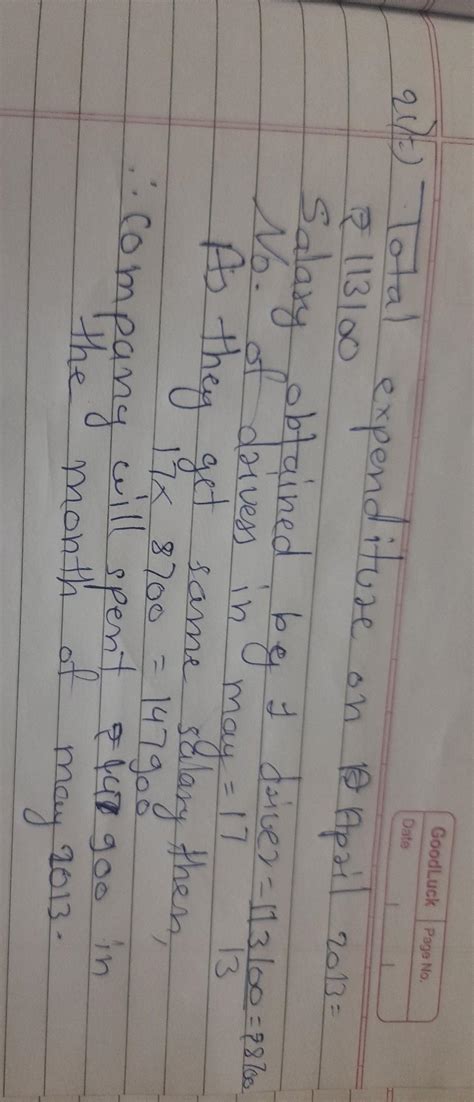 GoodLuck Page No.
Date
Q1(b) Total expenditure on April 2013 =
₹ 113100
Salary obtained by 1 driver = 113100 = ₹8700
13
No. of drivers in may = 17
As they get same salary then,
17 × 8700 = 147900
∴ Company will spent ₹ 147900 in
the month of may 2013.